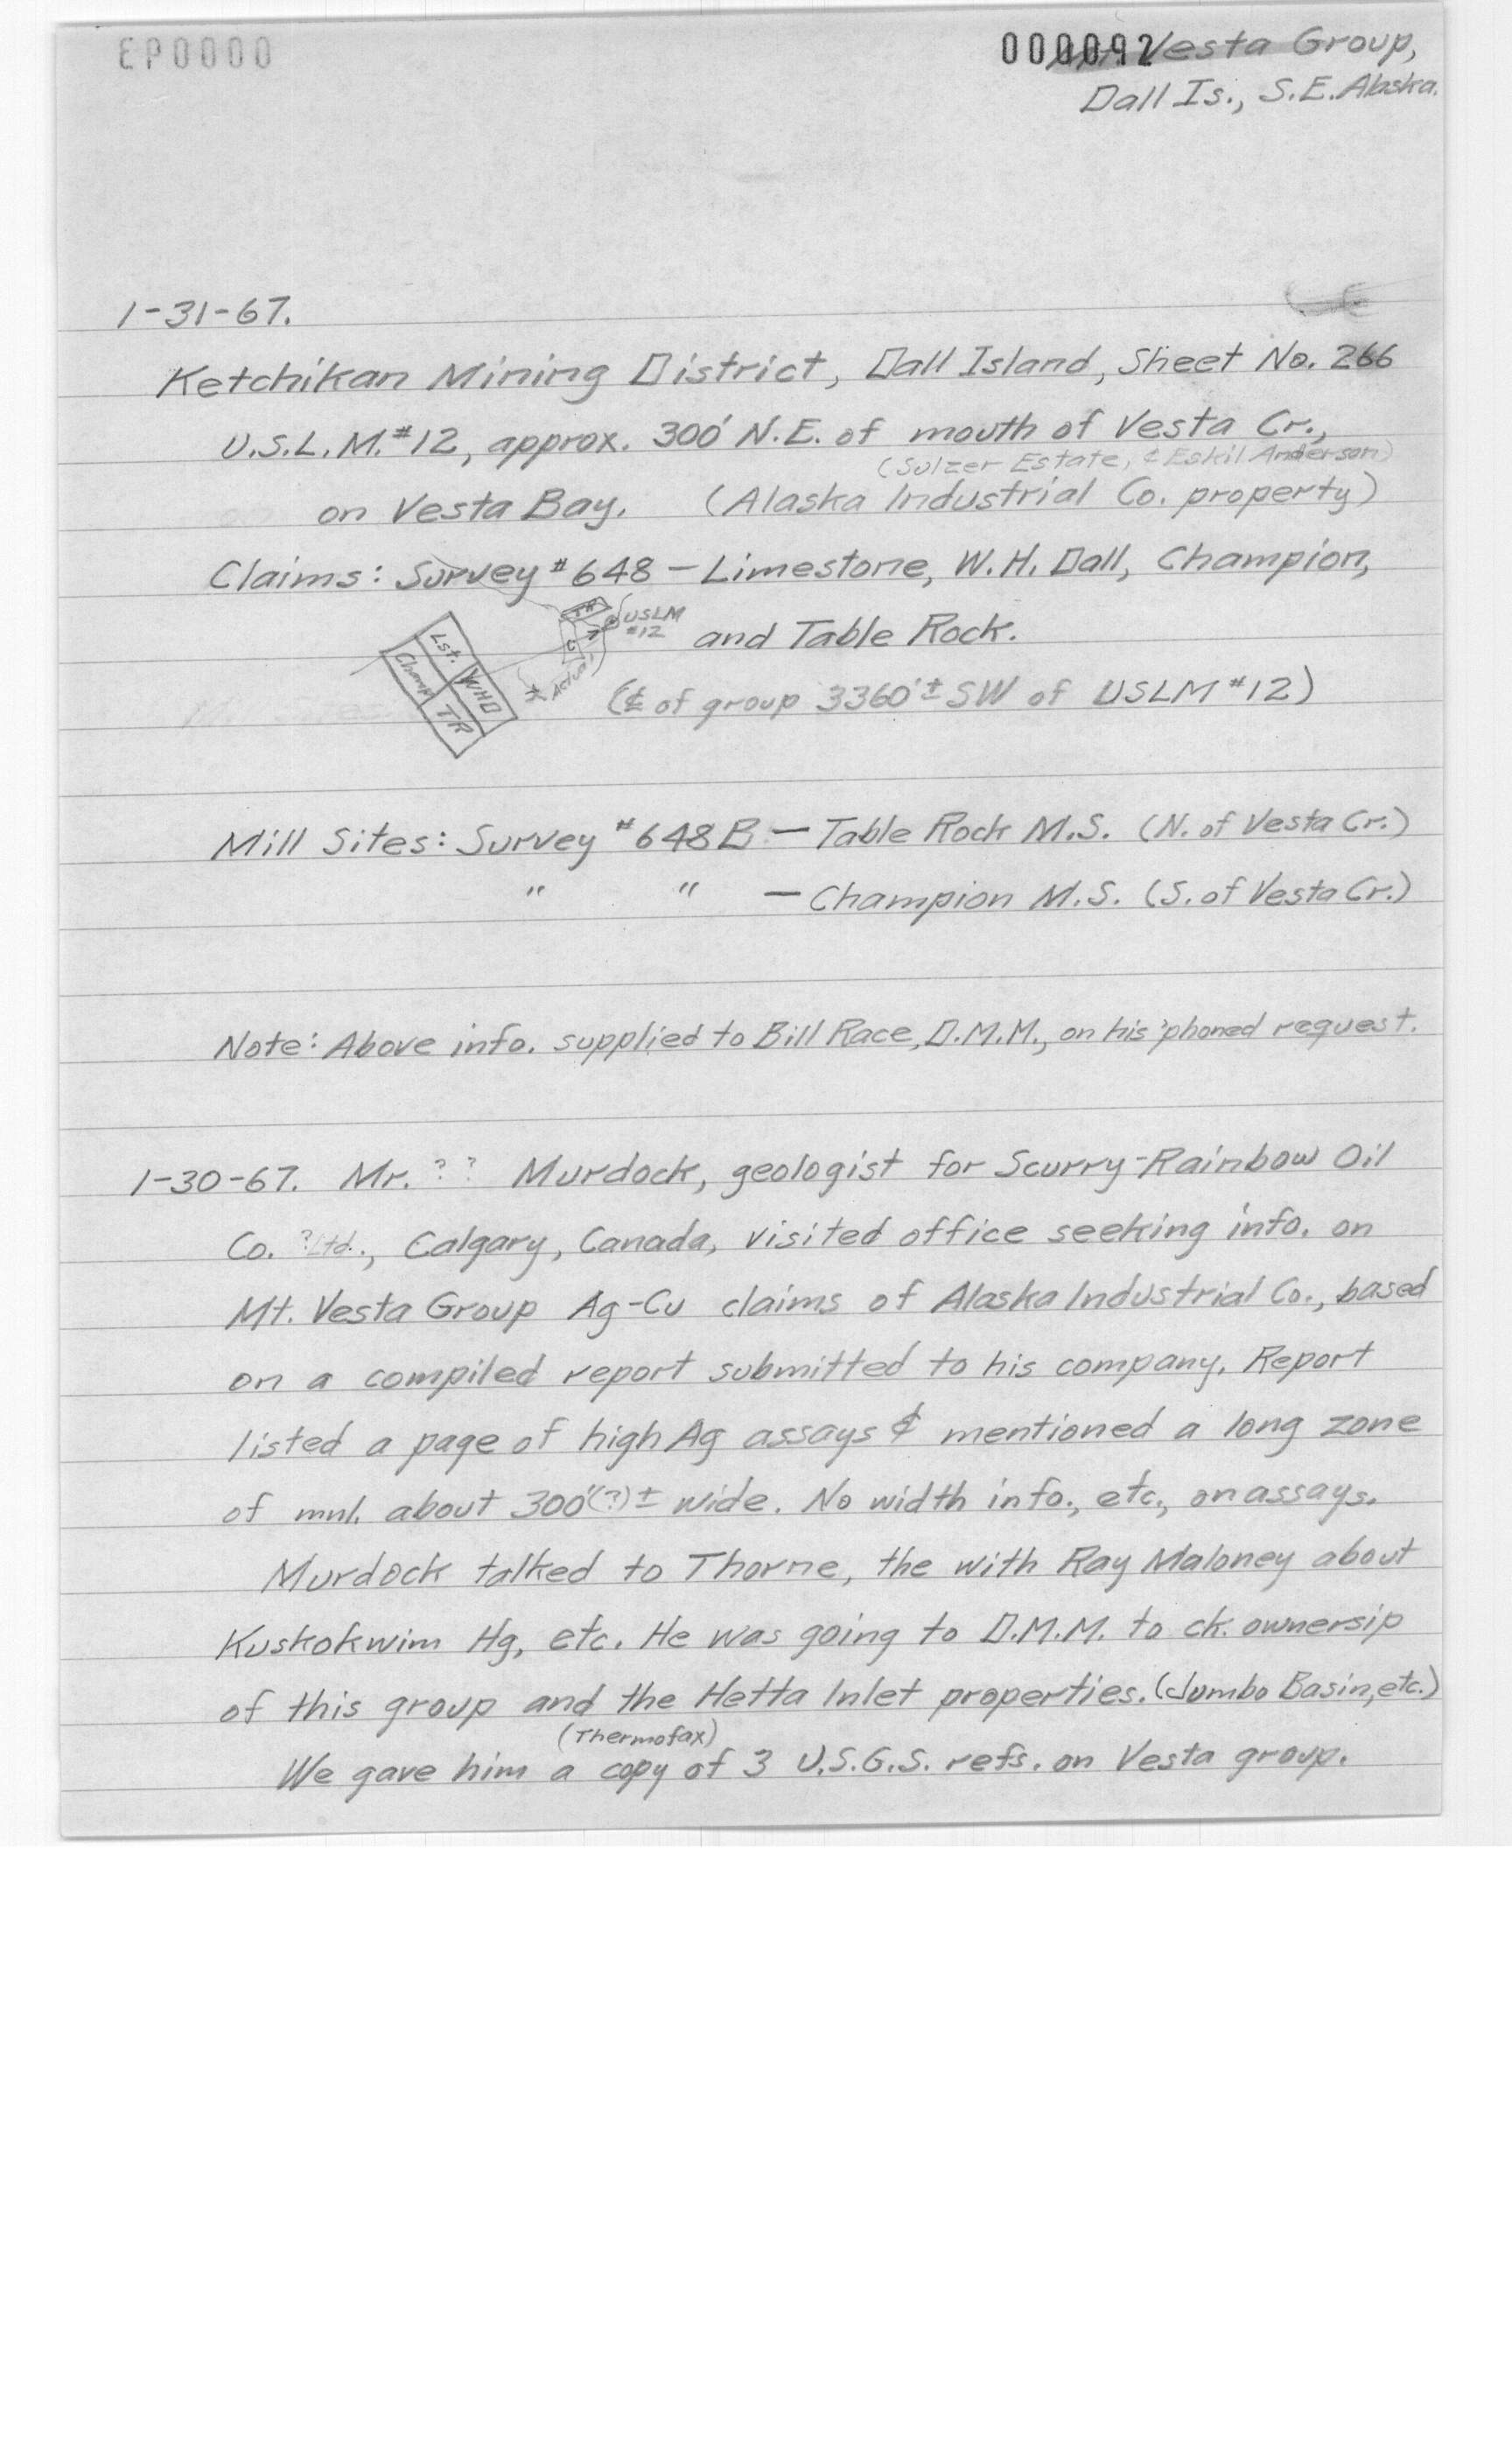 EP0000
000092 Vesta Group,
Dall Is., S.E. Alaska.
1-31-67.
Ketchikan Mining District, Dall Island, Sheet No. 266
U.S.L.M. #12, approx. 300' N.E. of mouth of Vesta Cr.,
(Sulzer Estate, & Eskil Anderson)
on Vesta Bay. (Alaska Industrial Co. property)
Claims: Survey #648 — Limestone, W.H. Dall, Champion,
TR
USLM
#12
and Table Rock.
C
Lst.
WHD
Champ
TR
Actual
(℄ of group 3360'± SW of USLM #12)
Mill Sites: Survey #648 B — Table Rock M.S. (N. of Vesta Cr.)
" " — Champion M.S. (S. of Vesta Cr.)
Note: Above info. supplied to Bill Race, D.M.M., on his 'phoned request.
1-30-67. Mr. ? ? Murdock, geologist for Scurry-Rainbow Oil
Co. ?Ltd., Calgary, Canada, visited office seeking info. on
Mt. Vesta Group Ag-Cu claims of Alaska Industrial Co., based
on a compiled report submitted to his company. Report
listed a page of high Ag assays & mentioned a long zone
of mnl. about 300'(?)± wide. No width info., etc., on assays.
Murdock talked to Thorne, the with Ray Maloney about
Kuskokwim Hg, etc. He was going to D.M.M. to ck. ownersip
of this group and the Hetta Inlet properties. (Jumbo Basin, etc.)
(Thermofax)
We gave him a copy of 3 U.S.G.S. refs. on Vesta group.